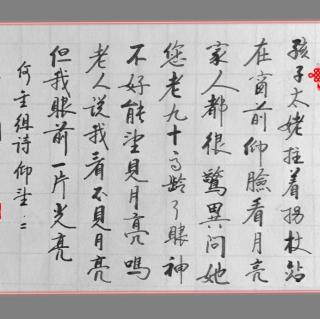 孩子太姥拄着拐杖站
在窗前仰臉看月亮
家人都很驚異问她
您老九十高龄了眼神
不好能望見月亮嗎
老人说我看不見月亮
但我眼前一片光亮
何主組诗仰望二